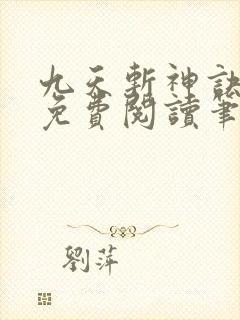 九天斬神訣
免費閱讀筆
劉萍